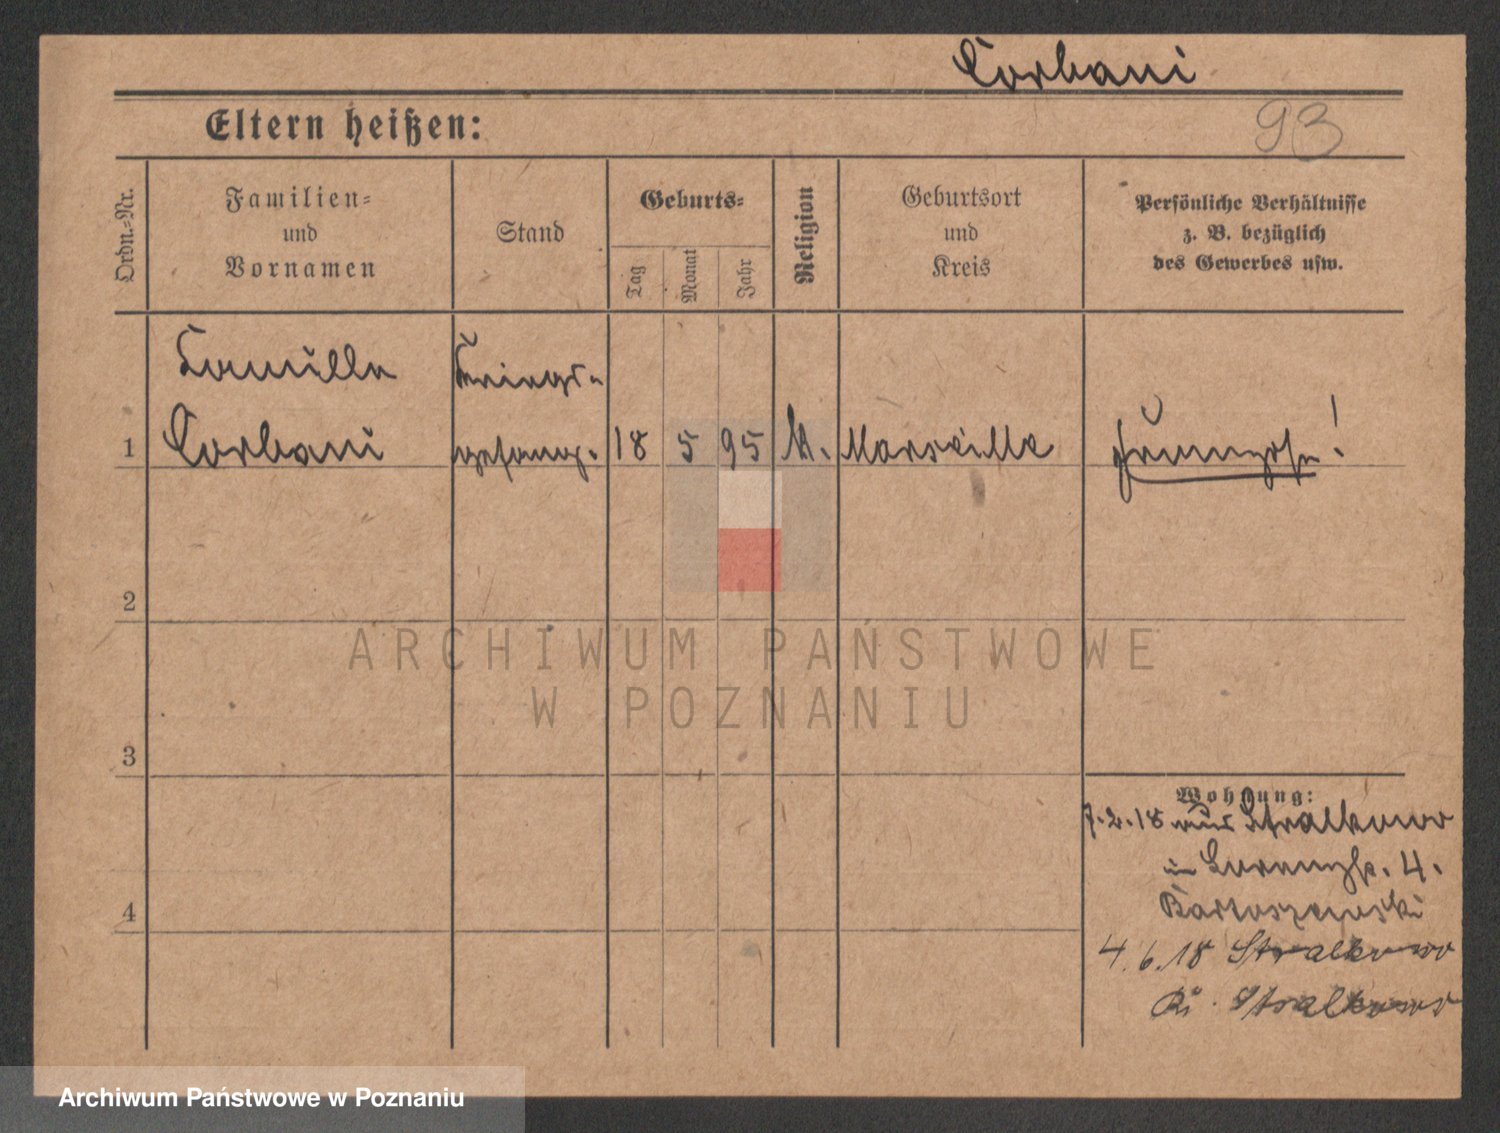 Corbani
93
Eltern heißen:
Ordn.-Nr.
Familien-
und
Vornamen
Stand
Geburts-
Tag
Monat
Jahr
Religion
Geburtsort
und
Kreis
Persönliche Verhältnisse
z. B. bezüglich
des Gewerbes usw.
Camille Kriegs-
1 Corbani gefang. 18 5 95 Marseille Franzose!
2
3
4
Wohnung:
7.2.18 aus Stralkowo
in 4.
Bartoszewski
4.6.18 Stralkowo
Stralkowo
ARCHIWUM PAŃSTWOWE
W POZNANIU
Archiwum Państwowe w Poznaniu